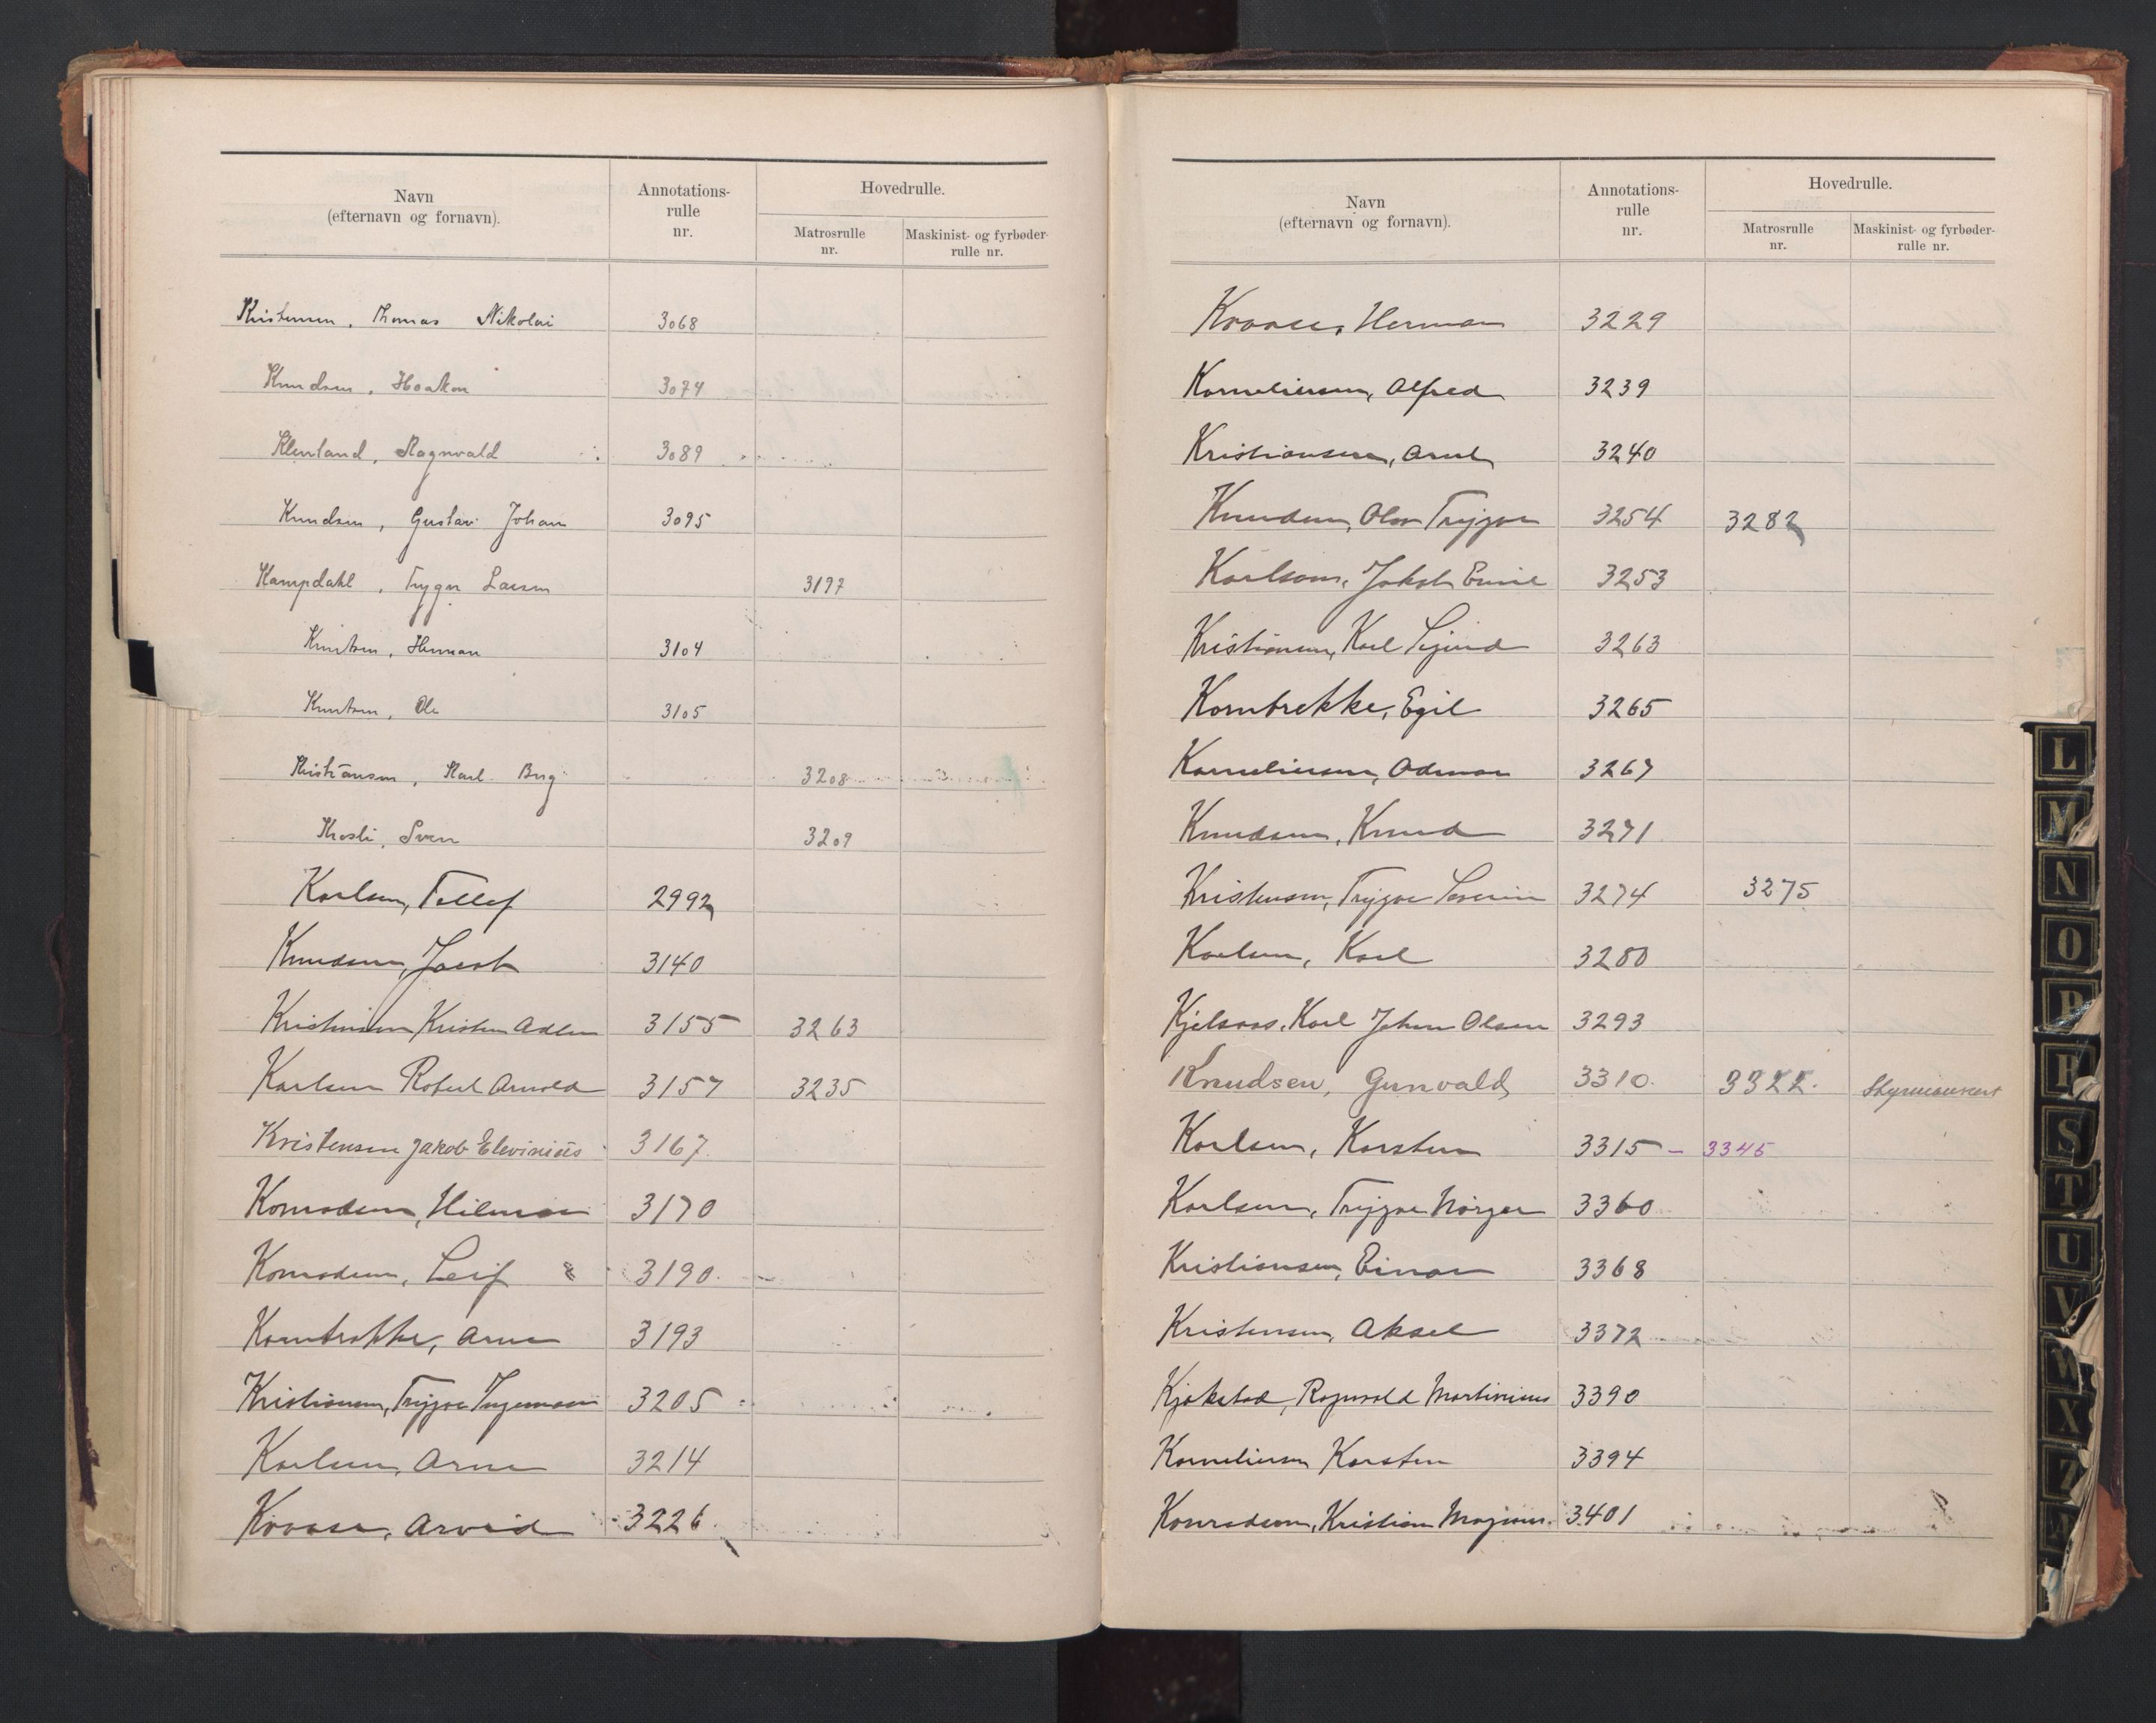 Navn
(efternavn og fornavn).
Annotations-
rulle
nr.
Hovedrulle.
Matrosrulle
nr.
Maskinist- og fyrbøder-
rulle nr.
Kristensen, Thomas Nikolai 3068
Knudsen, Haakon 3074
Ragnvald 3089
Knudsen, Gustav Johan 3095
Kampdahl, Trygve Larsen 3197
Knutsen, Herman 3104
Knutsen, Ole 3105
Kristiansen, Karl Birg 3208
Sven 3209
Karlsen, Tellef 2992
Knudsen, Jacob 3140
Kristensen Kristen Adlen 3155 3263
Karlsen Robert Arnold 3157 3235
Kristensen Jakob Elevinius 3167.
Konradsen, Hilmar 3170
Konradsen, Leif 3190
Kornbrekke, Arne 3193
Kristiansen, Trygve Ingemann 3205
Karlsen, Arne 3214
Kraase, Arvid 3226
Navn
(efternavn og fornavn).
Annotations-
rulle
nr.
Hovedrulle.
Matrosrulle
nr.
Maskinist- og fyrbøder-
rulle nr.
Kraase, Herman 3229
Korneliussen, Alfred 3239
Kristiansen, Arnt 3240
Knudsen, Olav Trygve 3254 3282
Karlsen, Jakob Emil 3253
Kristiansen, Karl Sigurd 3263
Kornbrekke, Egil 3265
Korneliussen, Odmar 3267
Knudsen, Knud 3271
Kristensen, Trygve Severin 3274 3275
Karlsen, Karl 3280
Kjelsaas, Karl Johan Olsen 3293
Knudsen, Gunvald 3310. 3322. Styrmannsert
Karlsen, Karsten 3315 - 3345
Karlsen, Trygve Norger 3360
Kristiansen, Einar 3368
Kristensen, Aksel 3372
Kjøkstad, Ragnvald Martinius 3390
Korneliussen Karsten 3394
Konradsen, Kristian Magnus. 3401
L
M
N
O
P
R
S
T
U
V
W
X
Z